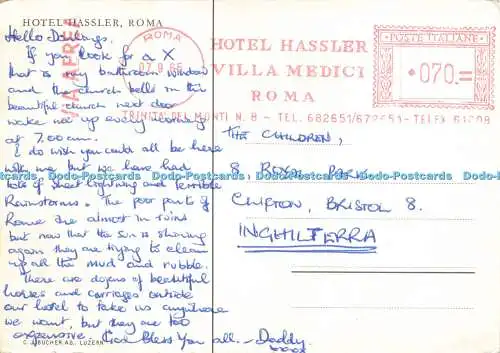 HOTEL HASSLER, ROMA
Hello Darlings.
If you look for a X
that is my bathroom window
and the church bells in this
beautiful church next door
wake me up every morning
at 7.00 am.
I do wish you could all be here
with me but we have had
lots of sheet lightning and terrible
Rainstorms. The poor parts of
Rome are almost in ruins
but now that the sun is shining
again they are trying to clean
up all the mud and rubble.
There are dozens of beautiful
horses and carriages outside
our hotel to take us anywhere
we want, but they are too
expensive. God Bless You all. - Daddy
xxxx
C. J. BUCHER AG., LUZERN
VIA AEREA
ROMA
07.9.65
HOTEL HASSLER
VILLA MEDICI
ROMA
TRINITA' DEI MONTI N. 8 - TEL. 682651/672651 - TELEX 61208
POSTE ITALIANE
070
THE CHILDREN,
8 ROYAL PARK
CLIFTON, BRISTOL 8.
INGHILTERRA
Da-Postcards